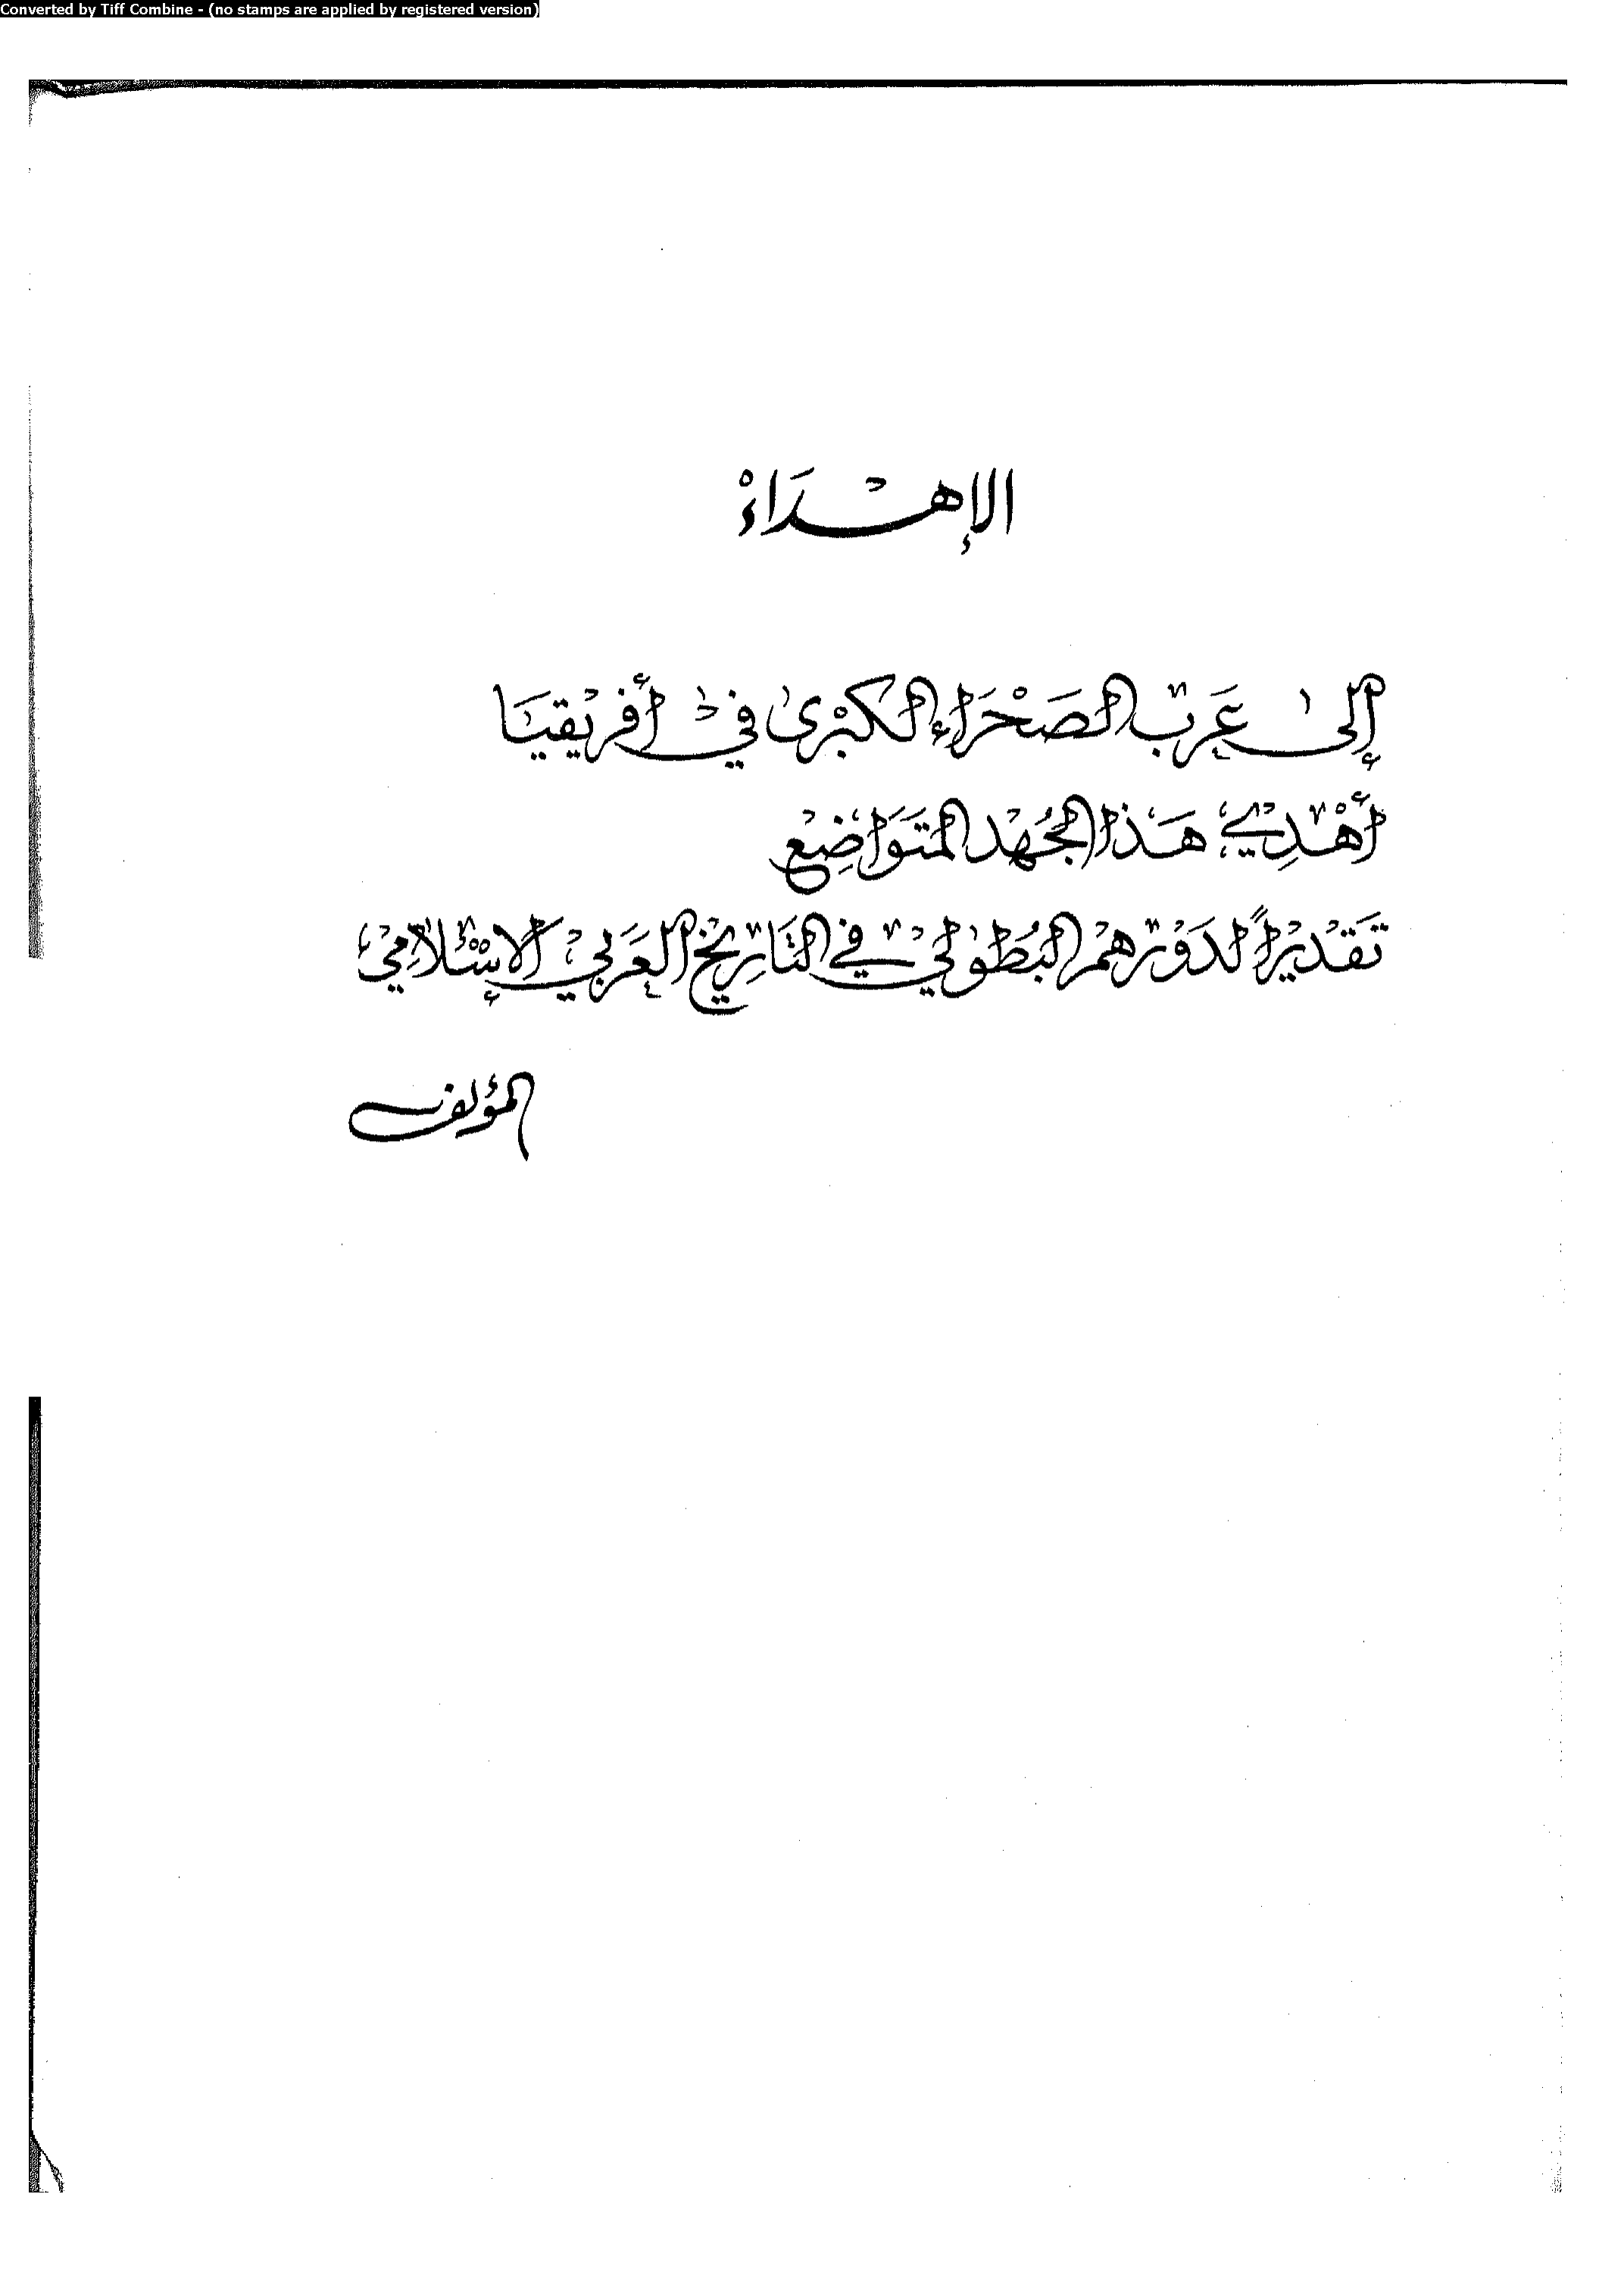 Converted by Tiff Combine - (no stamps are applied by registered version)
الإهْدَاءْ
إلى عَرَبْ الصَحْرَاء الكبْرى في أفريْقيَا
أهْدِي هَذا الجُهْد المتَوَاضِع
تَقديْراً لدَوْرهمْ البُطوْلي في التَاريْخ العَرَبي الإسْلامِي
المؤلف